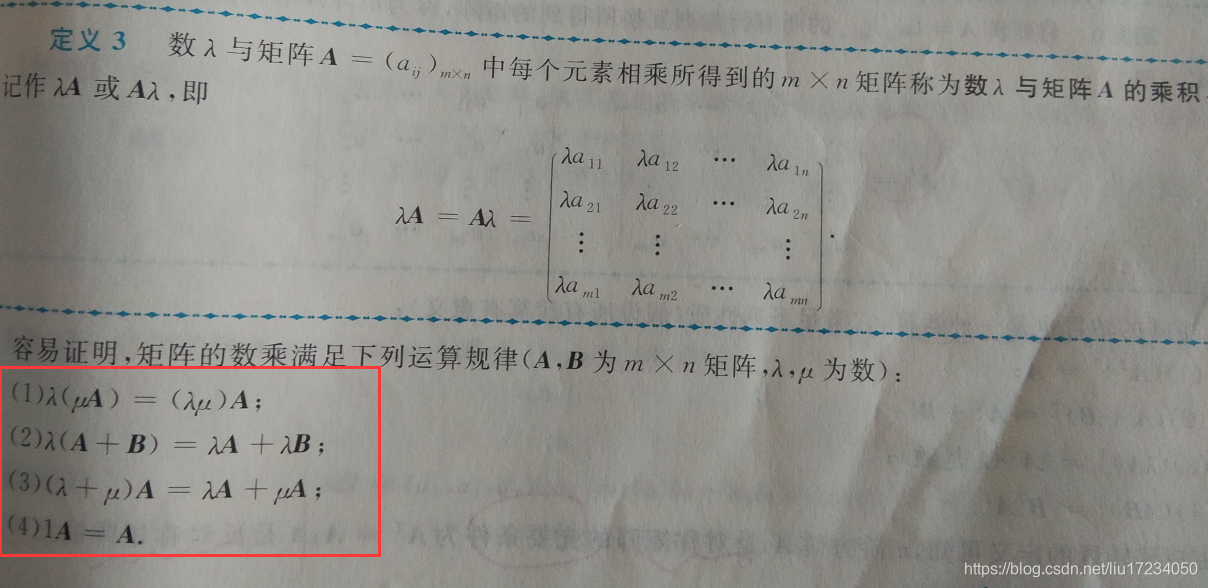 定义 3 数 λ 与矩阵 A = (a_{ij})_{m×n} 中每个元素相乘所得到的 m × n 矩阵称为数 λ 与矩阵 A 的乘积,
记作 λA 或 Aλ,即
λa_{11} λa_{12} ⋯ λa_{1n}
λa_{21} λa_{22} ⋯ λa_{2n}
λA = Aλ =
⋮ ⋮ ⋮ .
λa_{m1} λa_{m2} ⋯ λa_{mn}
容易证明,矩阵的数乘满足下列运算规律(A,B 为 m × n 矩阵,λ,μ 为数):
(1)λ(μA) = (λμ)A;
(2)λ(A + B) = λA + λB;
(3)(λ + μ)A = λA + μA;
(4)1A = A.
https://blog.csdn.net/liu17234050